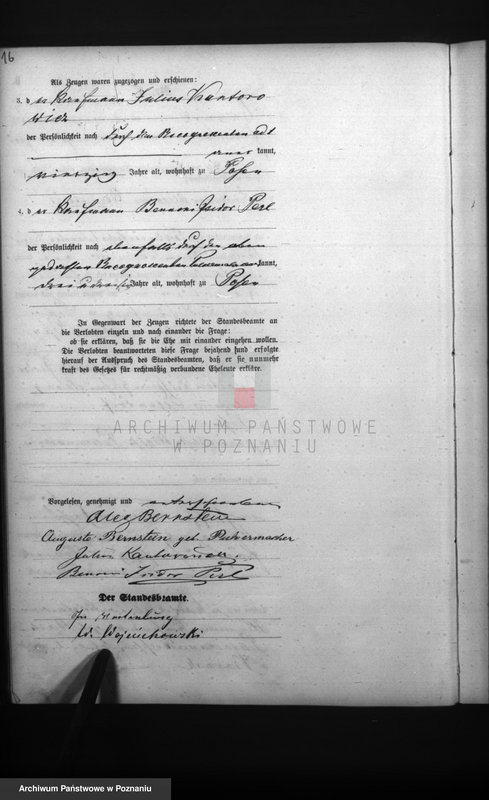 16
Als Zeugen waren zugezogen und erschienen:
3. d er Kaufmann Julius Kantoro
wicz
der Persönlichkeit nach durch den Recognoscenten
aner kannt,
vierzig Jahre alt, wohnhaft zu Posen
4. d er Kaufmann Bennoni Isidor Perl
der Persönlichkeit nach ebenfalls durch den oben
gedachten Recognoscenten kannt,
drei u dreißig Jahre alt, wohnhaft zu Posen
In Gegenwart der Zeugen richtete der Standesbeamte an
die Verlobten einzeln und nach einander die Frage:
ob sie erklären, daß sie die Ehe mit einander eingehen wollen.
Die Verlobten beantworteten diese Frage bejahend und erfolgte
hierauf der Ausspruch des Standesbeamten, daß er sie nunmehr
kraft des Gesetzes für rechtmäßig verbundene Eheleute erkläre.
ARCHIWUM PAŃSTWOWE
W POZNANIU
Vorgelesen, genehmigt und unterschrieben
Alex Bernstein
Auguste Bernstein geb. Pulvermacher
Julius Kantorowicz.
Bennoni Isidor Perl
Der Standesbeamte.
In Vertretung
Wojciechowski
Archiwum Państwowe w Poznaniu